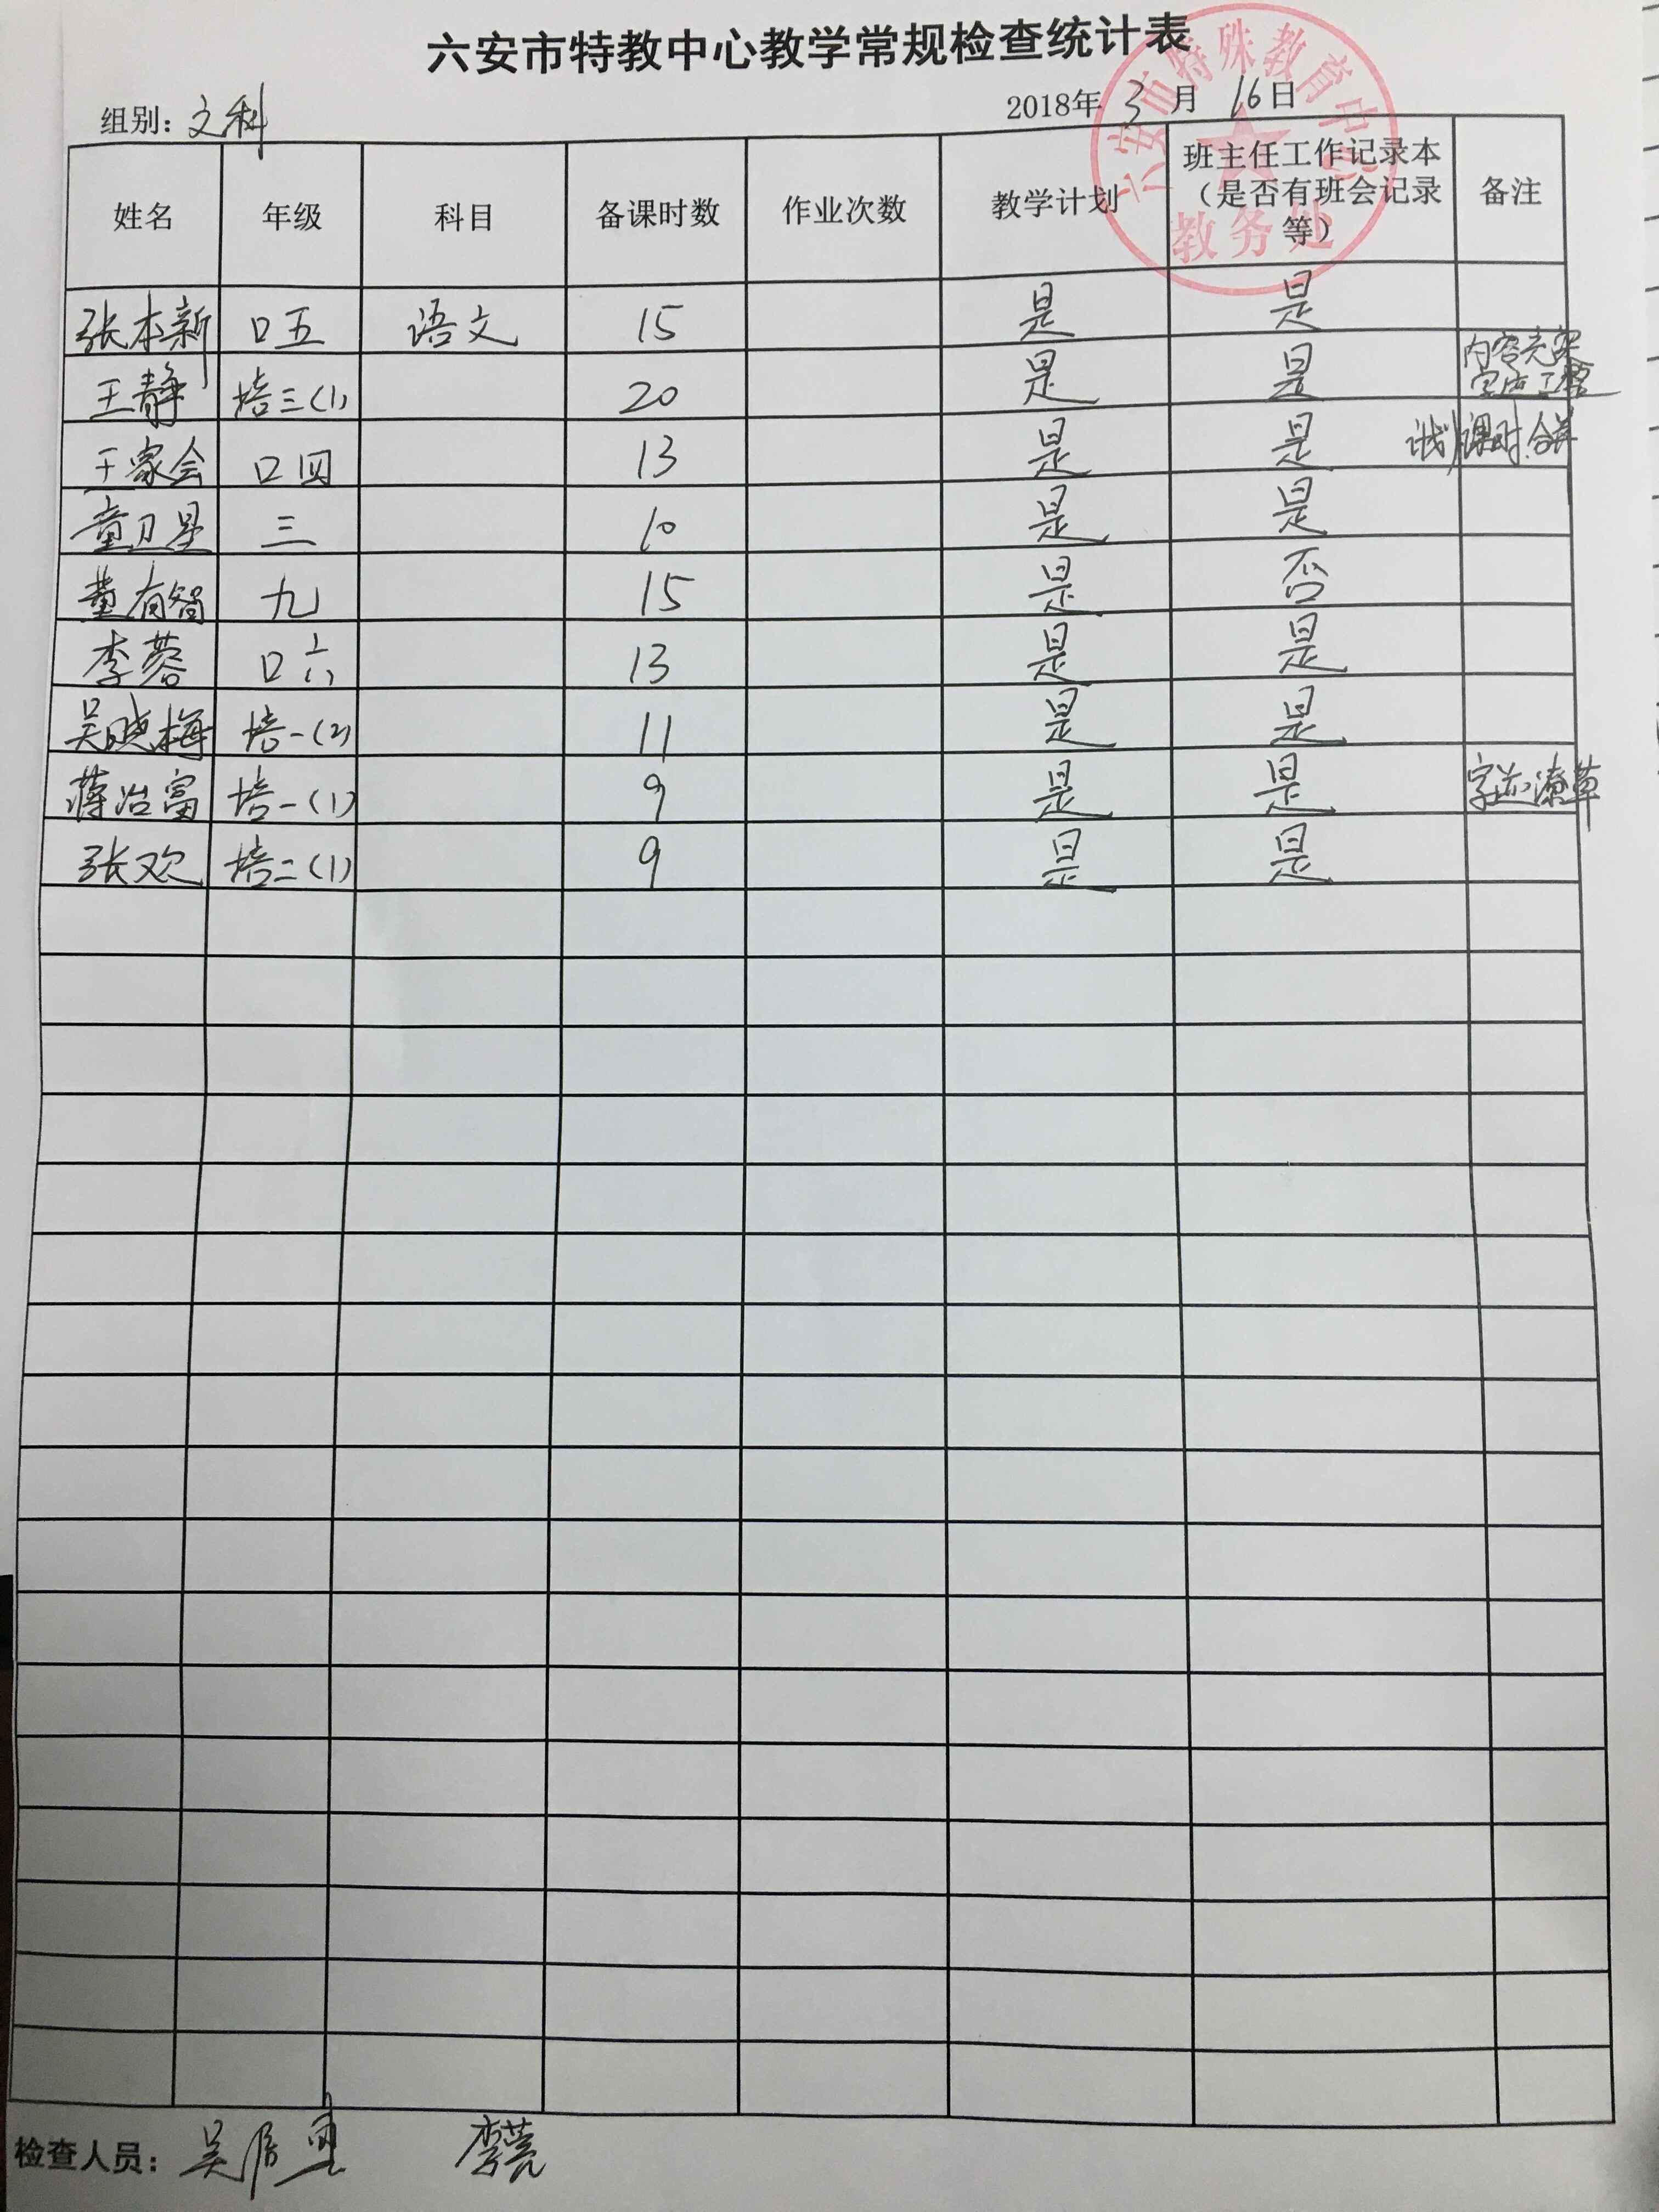 六安市特教中心教学常规检查统计表
组别：文科 2018年 3 月 16日
姓名 年级 科目 备课时数 作业次数 教学计划 班主任工作记录本（是否有班会记录等） 备注
六安市特殊教育中心
教务处
张本新 口五 语文 15 是 是
王静 培三(1) 20 是 是 内容充实 字迹工整
王家会 口四 13 是 是 计划课时合并
童卫星 三 10 是 是
董有智 九 15 是 否
李蓉 口六 13 是 是
吴晓梅 培一(2) 11 是 是
蒋治富 培一(1) 9 是 是 字迹潦草
张欢 培二(1) 9 是 是
检查人员：吴 李